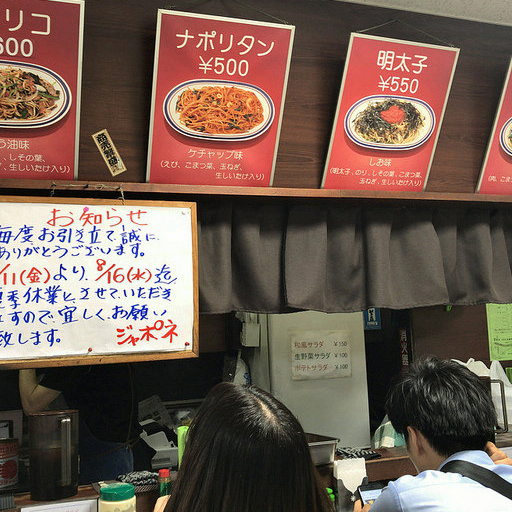 リコ
600
う油味
、しその葉、
、生しいたけ入り)
ナポリタン
¥500
ケチャップ味
(えび、こまつ菜、玉ねぎ、
生しいたけ入り)
明太子
¥550
しお味
(明太子、のり、しその葉、こまつ菜、
玉ねぎ、生しいたけ入り)
お知らせ
毎度お引き立て誠に
ありがとうございます。
/11(金)より、8/16(水)迄
季休業とさせていただき
ますので宜しくお願い
致します。
ジャポネ
和風サラダ ¥150
生野菜サラダ ¥100
ポテトサラダ ¥100
消火器